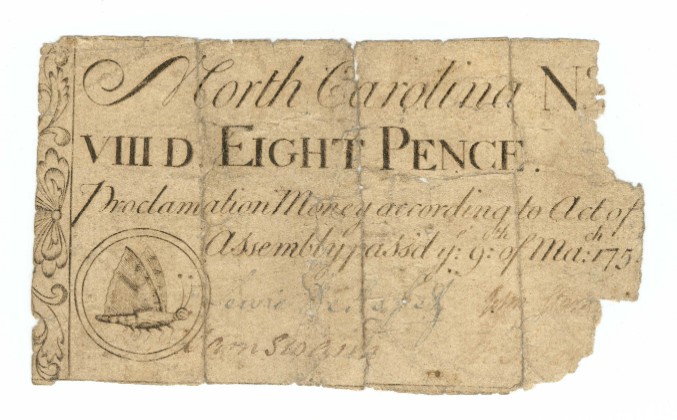 North Carolina No
VIII D. EIGHT PENCE.
Proclamation Money according to Act of
Assembly pass'd ye. 9th. of Mar:ch 175
Lewis